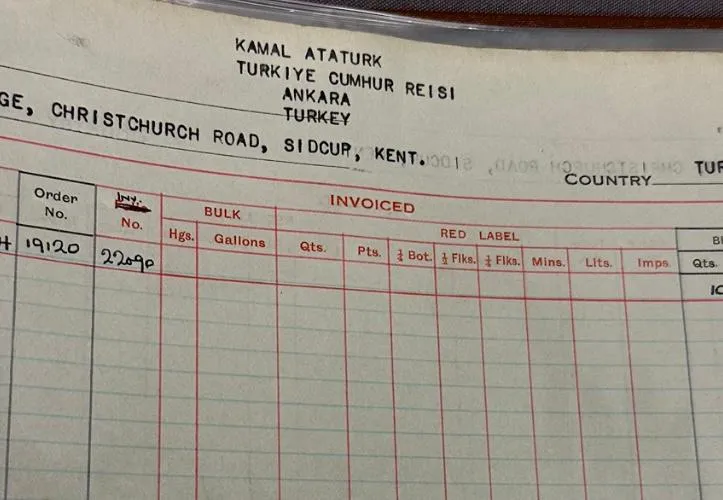 KAMAL ATATURK
TURKIYE CUMHUR REISI
ANKARA
TURKEY
GE, CHRISTCHURCH ROAD, SIDCUP, KENT.
COUNTRY TUR
Order No. Inv. No. INVOICED
BULK RED LABEL
Hgs. Gallons Qts. Pts. ½ Bot. ½ Flks. ¼ Flks. Mins. Lits. Imps. Qts.
H 19120 22090 10